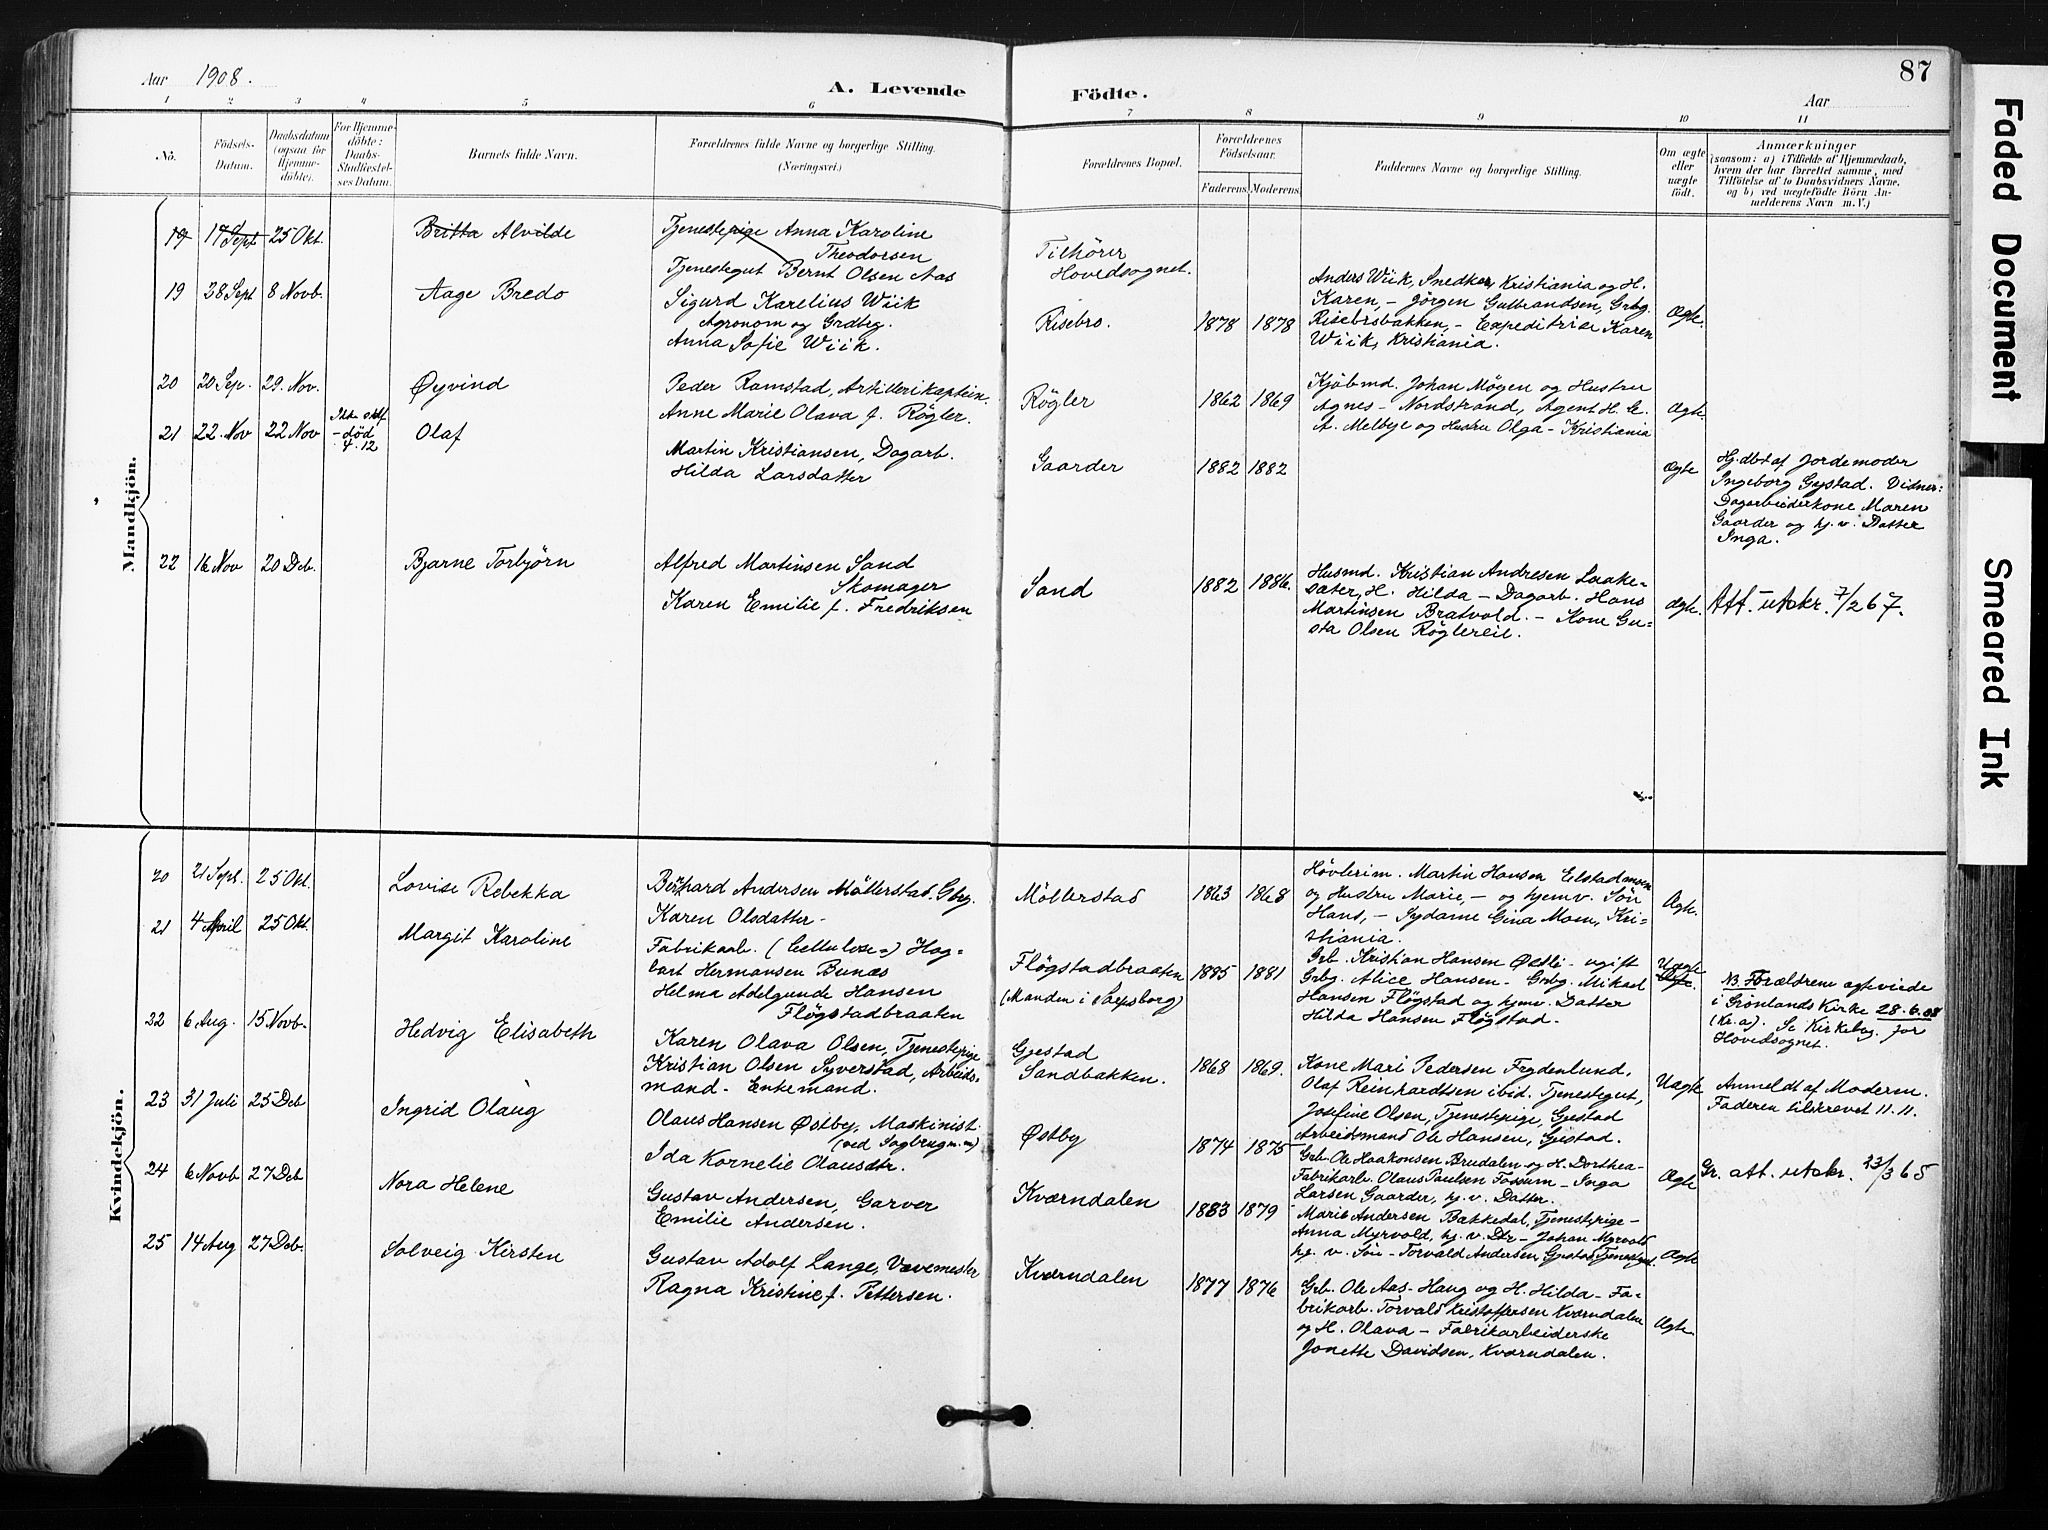 Aar 1908.
A. Levende Födte.
87
Aar
1 2 3 4 5 6 7 8 9 10 11
No.
Födsels-Datum.
Daabsdatum (ogsaa for Hjemme-döbte).
For Hjemme-döbte: Daabs-Stadfæstel-ses Datum.
Barnets fulde Navn.
Forældrenes fulde Navne og borgerlige Stilling.
(Næringsvei.)
Forældrenes Bopæl.
Forældrenes Födselsaar.
Faderens. Moderens.
Faddernes Navne og borgerlige Stilling.
Om ægte eller uægte födt.
Anmærkninger
(saasom: a) i Tilfælde af Hjemmedaab,
hvem der har forrettet samme, med
Tilföielse af to Daabsvidners Navne,
og b) ved uægtefödte Börn An-
melderens Navn m. V.)
Mandkjön.
19 17 Sept 25 Okt. Britta Alvilde
Tjenestepige Anna Karoline
Theodorsen
Tjenestegut Bernt Olsen Aas
Tilhörer
Hovedsognet.
19 28 Sept 8 Novb. Aage Bredo
Sigurd Karelius Wiik
Agronom og Grdbrg.
Anna Sofie Wiik.
Risebro. 1878 1878
Anders Wiik, Snedker, Kristiania og H.
Karen, – Jörgen Gulbrandsen, Grbg.
Risebrobakken, – Expeditrise Karen
Wiik, Kristiania.
Ægte.
20 20 Sep. 29. Nov. Øyvind
Peder Ramstad, Artillerikaptein.
Anne Marie Olava f. Røgler.
Røgler 1862 1869
Kjøbmd. Johan Møgen og Hustru
Agnes – Nordstrand, Agent H. E.
A. Melbye og Hustru Olga – Kristiania
Ægte.
21 22. Nov 22 Nov Ikke stdf. – død 4.12 Olaf
Martin Kristiansen, Dagarb.
Hilda Larsdatter
Gaarder 1882 1882
Ægte
Hj.dbt af Jordemoder
Ingeborg Gystad. Vidner:
Dagarbeiderkone Maren
Gaarder og hj. v. Datter
Inga.
22 16 Nov 20 Deb. Bjarne Torbjørn
Alfred Martinsen Sand
Skomager
Karen Emilie f. Fredriksen
Sand 1882 1886.
Husmd. Kristian Andresen Laake-
sæter, H. Hilda – Dagarb. Hans
Martinsen Bratvold. – Kone Gu-
sta Olsen Røglereie.
Ægte.
Att. utskr. 7/2 67.
Kvindekjön.
20 21 Sept. 25 Okt. Lovise Rebekka
Bernhard Andersen Möllerstad, Gbrg.
Karen Olsdatter –
Möllerstad 1863 1868
Høvlerim. Martin Hansen Elstadmoen
og Hustru Marie, – og hjemv. Sön
Hans, – Sydame Gina Moen, Kri-
stiania.
Ægte.
21 4 April 25 Okt. Margit Karoline
Fabrikarb. (Cellulose-) Hag-
bart Hermansen Bunæs
Helma Adelgunde Hansen
Fløgstadbraaten
Fløgstadbraaten 1885 1881
(Manden i Sarpsborg)
Grb. Kristian Hansen Østli – ugift
Grbg. Alice Hansen – Grbg. Mikael
Hansen Fløgstad og hjmv. Datter
Hilda Hansen Fløgstad.
Uægte
Ægte.
NB. Forældrene ægteviede
i Grønlands Kirke 28.6.08
(Kr.a). Se Kirkebog for
Hovedsognet.
22 6 Aug. 15 Novb. Hedvig Elisabeth
Karen Olava Olsen, Tjenestepige
Kristian Olsen Syverstad, Arbeids-
mand – Enkemand.
Gjestad
Sandbakken. 1868 1869.
Kone Mari Pedersen Frydenlund,
Olaf Reinhardtsen ibid. Tjenestegut,
Josefine Olsen, Tjenestepige, Gjestad
Arbeidsmand Ole Hansen, Gjestad.
Uægte
Anmeldt af Moderen.
Faderen tilskrevet 11.11.
23 31 Juli 25 Deb Ingrid Olaug
Olaus Hansen Østby, Maskinist
(ved Sagbrug m.m)
Ida Kornelie Olausdtr.
Østby 1874 1875
Grb. Ole Haakonsen Brudalen og H. Dorthea –
Fabrikarb. Olaus Paulsen Fossum – Inga
Larsen Gaarder, hj. v. Datter.
Ægte
Gr. att. utskr. 23/3 65
24 6 Novb 27 Deb Nora Helene
Gustav Andersen, Garver
Emilie Andersen.
Kværndalen 1883 1879
Marie Andersen Bakkedal, Tjenestpige –
Anna Myrvold, hj. v. Dtr – Johan Myrvold
hj. v. Sön – Torvald Andersen, Gjestad, Tjenestgut.
Ægte
25 14 Aug 27 Deb. Solveig Kirsten
Gustav Adolf Lange, Vævemester
Ragna Kristine f. Pettersen.
Kværndalen 1877 1876
Grb. Ole Aas-Haug og H. Hilda – Fa-
brikarb. Torvald Kristoffersen Kværndalen
og H. Olava – Fabrikarbeiderske
Jonette Davidsen, Kværndalen.
Ægte
Faded Document
Smeared Ink